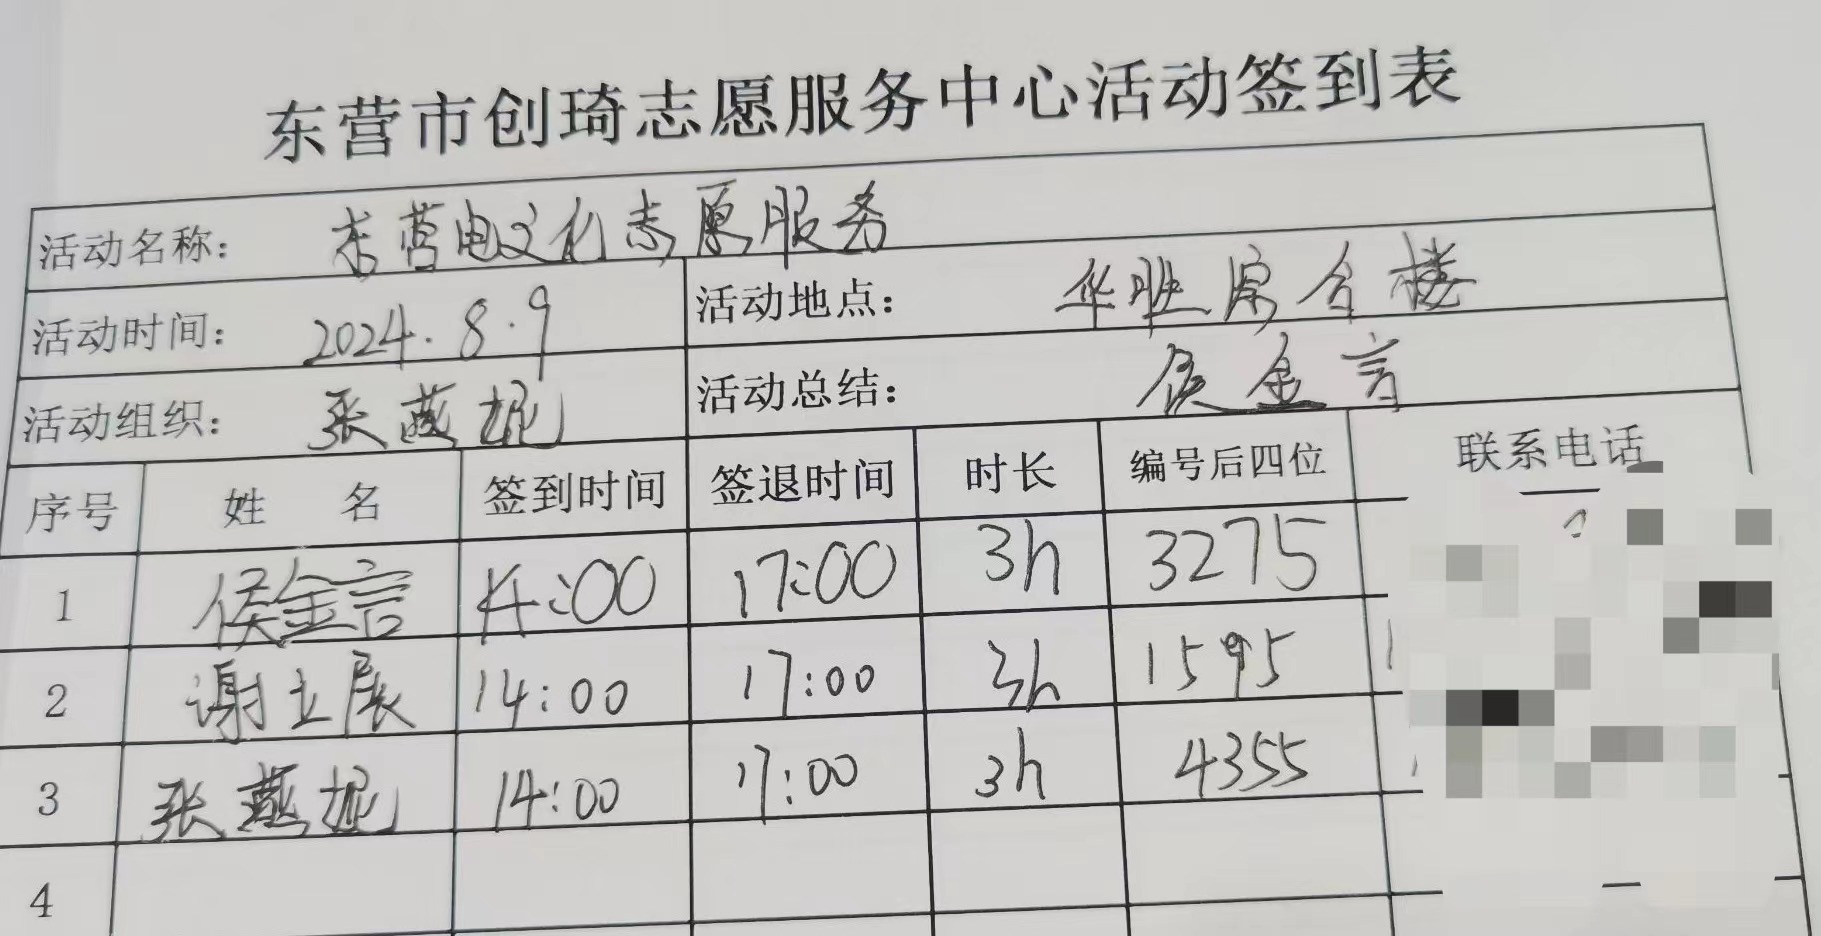 东营市创琦志愿服务中心活动签到表
活动名称： 东营电文化志愿服务
活动时间： 2024.8.9 活动地点： 华胜综合楼
活动组织： 张燕妮 活动总结： 侯金言
序号 姓 名 签到时间 签退时间 时长 编号后四位 联系电话
1 侯金言 14:00 17:00 3h 3275
2 谢立展 14:00 17:00 3h 1595
3 张燕妮 14:00 17:00 3h 4355
4